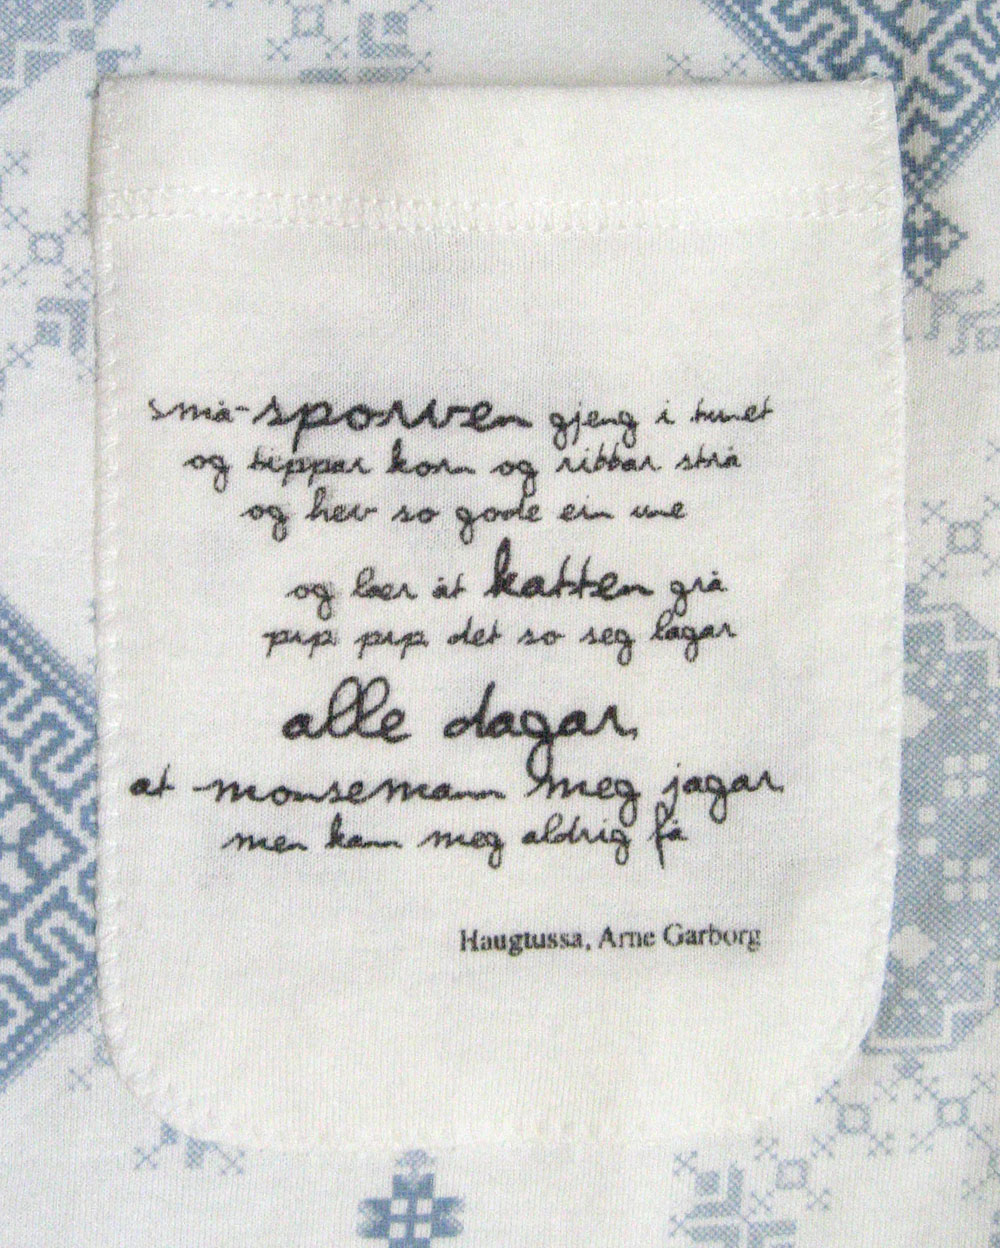 små-sporven gjeng i tunet
og tippar korn og ribbar strå
og hev so gode ein une
og lær åt katten grå
pip pip det so seg lagar
alle dagar,
at monsemann meg jagar,
men kann meg aldrig få
Haugtussa, Arne Garborg